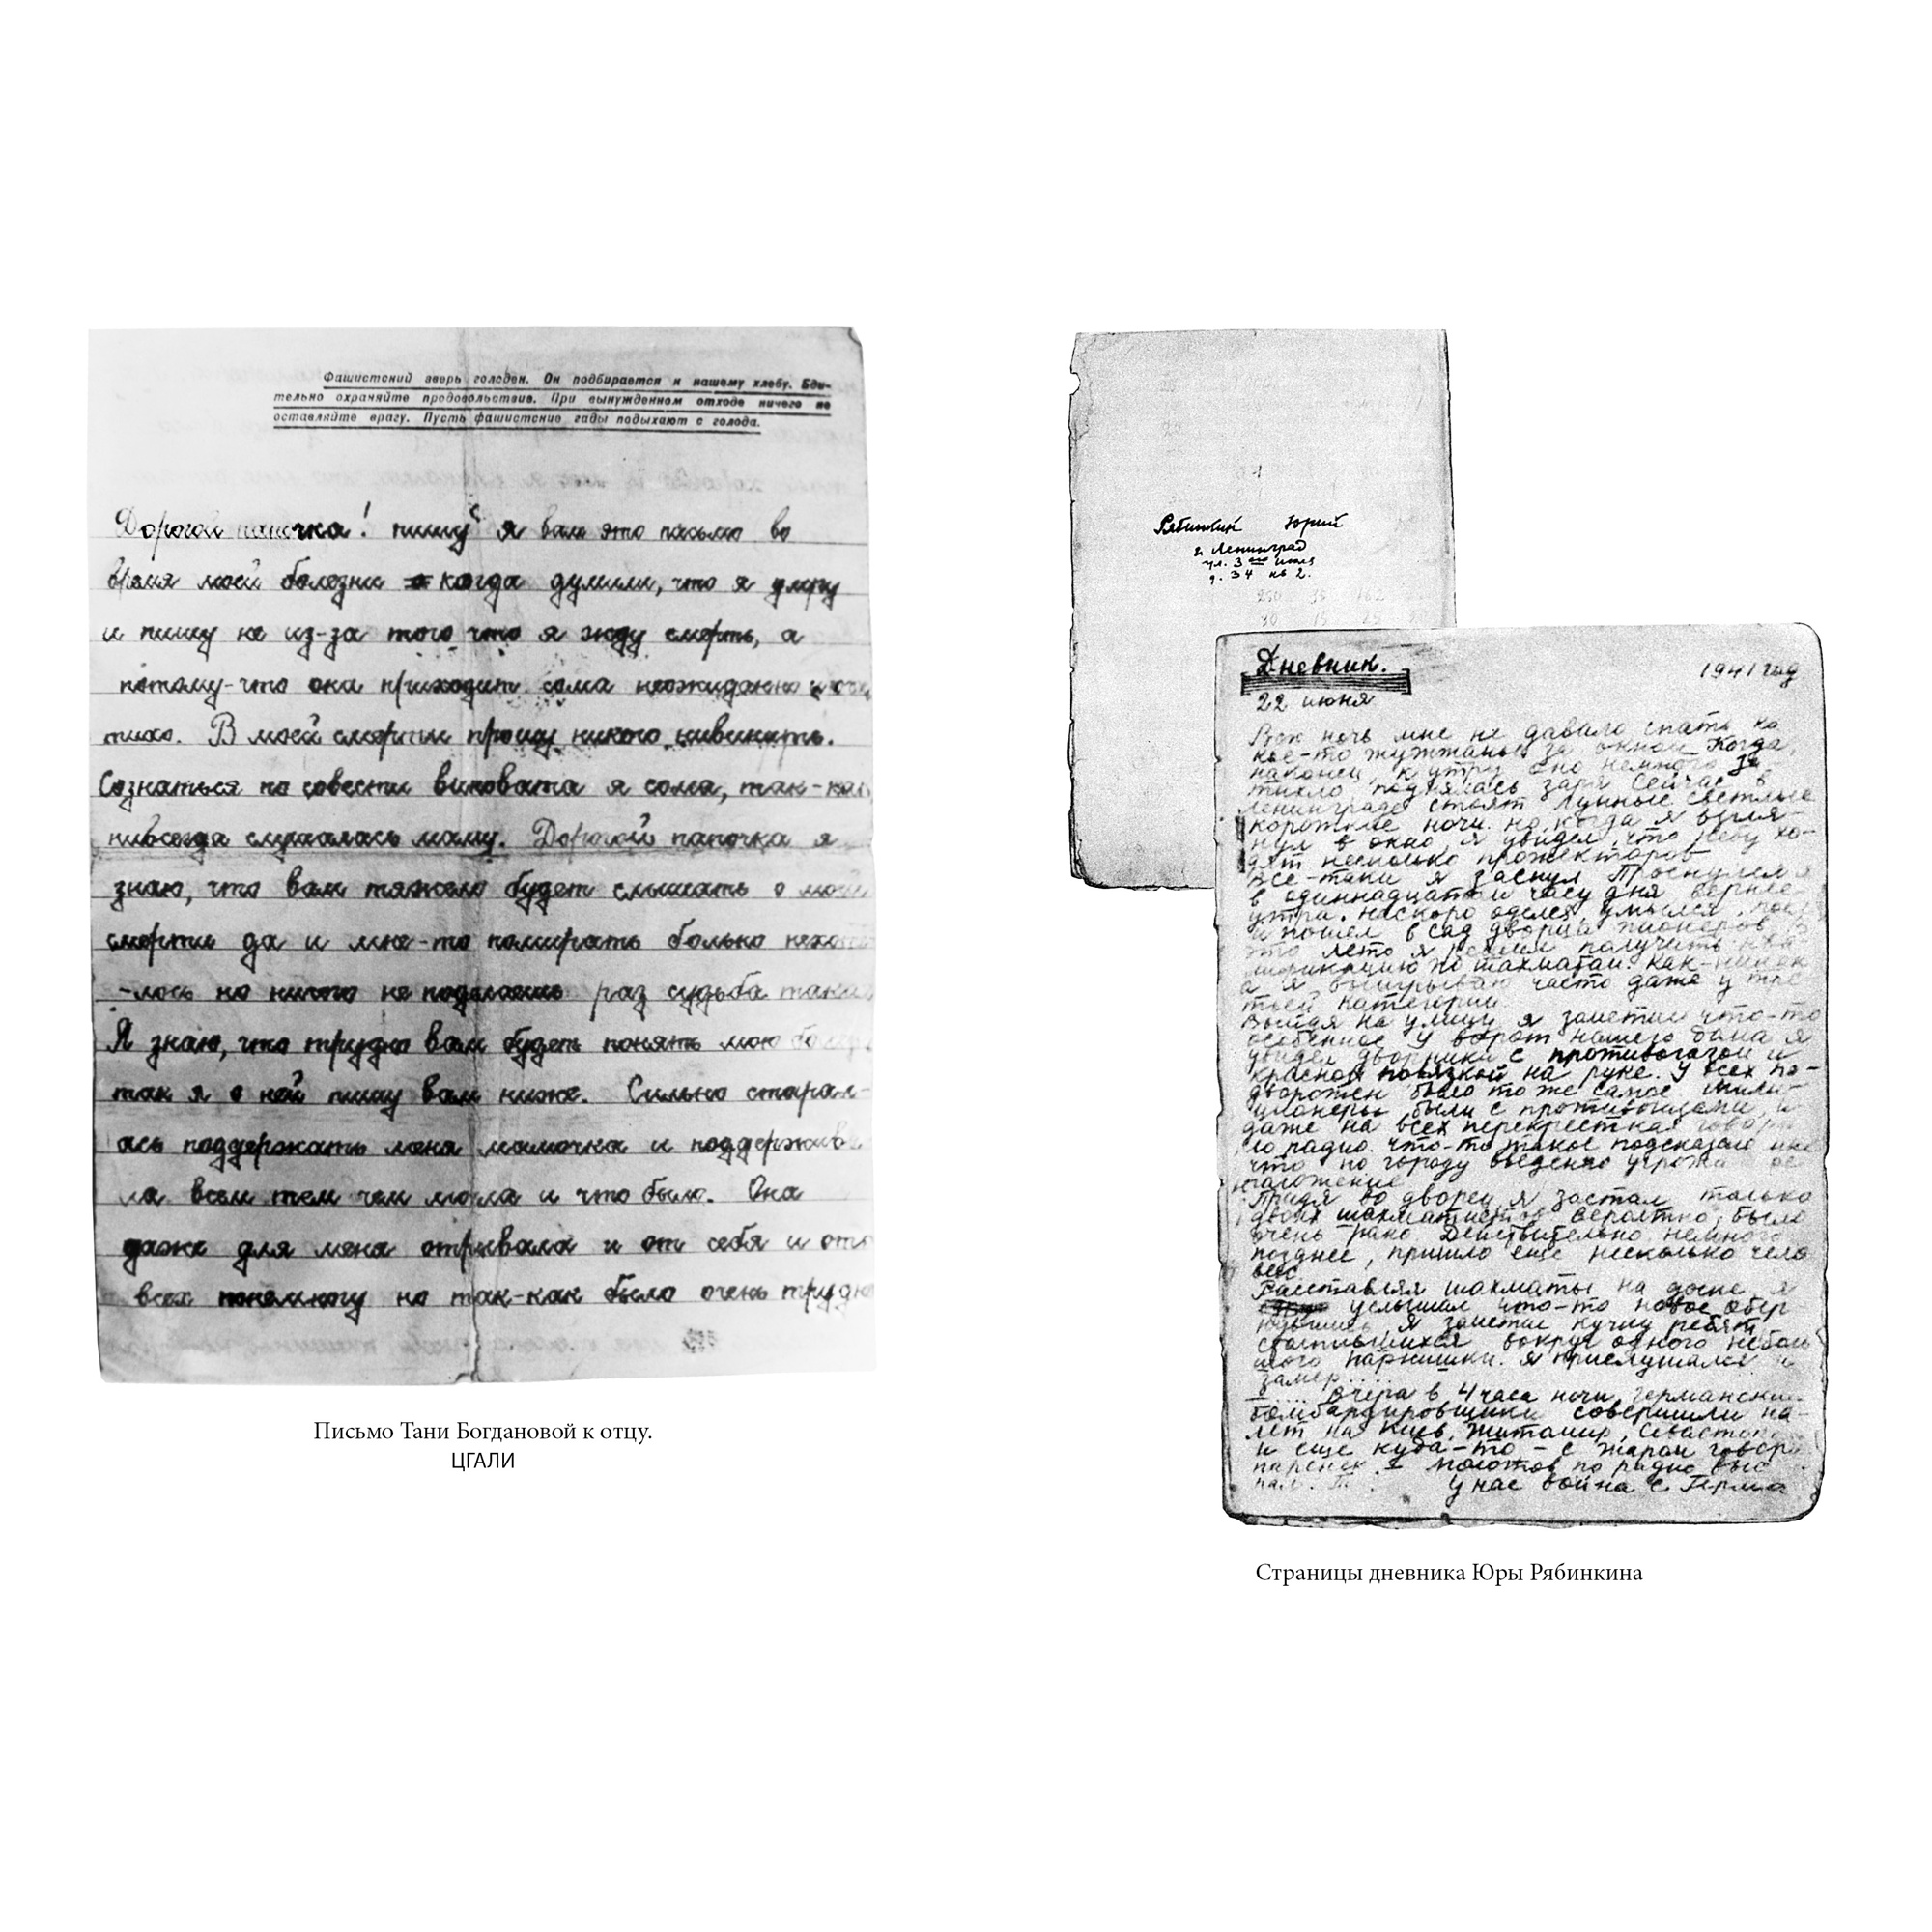 Фашистский зверь голоден. Он подбирается к нашему хлебу. Бди-
тельно охраняйте продовольствие. При вынужденном отходе ничего не
оставляйте врагу. Пусть фашистские гады подыхают с голода.
Дорогой папочка! пишу я вам это письмо во
время моей болезни когда думали, что я умру
и пишу не из-за того что я жду смерть, а
потому-что она приходит сама неожиданно и оче
тихо. В моей смерти прошу никого нивинить.
Сознаться по совести виновата я сама, так-как
нивсегда слушалась маму. Дорогой папочка я
знаю, что вам тяжело будет слышать о моей
смерти да и мне-то помирать больно нехоте
-лось но ничего не поделаешь раз судьба така
Я знаю, что трудно вам будет понять мою
так я о ней пишу вам ниже. Сильно старал-
ась поддержать меня мамочка и поддержива-
ла всем тем чем могла и что было. Она
даже для меня отрывала и от себя и ото
всех понемногу но так-как было очень трудно
Письмо Тани Богдановой к отцу.
ЦГАЛИ
Рябинкин Юрий
г. Ленинград
ул. 3го июля
д. 34 кв 2.
Дневник. 1941 год
22 июня
Всю ночь мне не давало спать ка
кое-то жужжанье за окном. Когда,
наконец, к утру оно немного за-
тихло, поднялась заря. Сейчас в
Ленинграде стоят лунные светлые
короткие ночи. но, когда я выгля-
нул в окно, я увидел, что небу хо-
дят несколько прожекторов.
Все-таки я заснул. Проснулся я
в одиннадцатом часу дня вернее
утра. Наскоро оделся, умылся, поел
и пошел в сад дворца пионеров. В
это лето я решил получить ква-
лификацию по шахматам. Как-никак
а я выигрываю часто даже у тре
тьей категории.
Выйдя на улицу я заметил что-то
особенное. У ворот нашего дома я
увидел дворника с противогазом и
красной повязкой на руке. У всех по-
дворотен было то же самое. Мили-
ционеры были с противогазами, и
даже на всех перекрестках говори
ло радио. что-то такое подсказало мне
что по городу введено угрожа ое
положение.
Придя во дворец я застал только
двоих шахматистов. Вероятно, было
очень рано. Действительно, немного
позднее, пришло еще несколько чело
век.
Расставляя шахматы на доске я
услышал что-то новое обер-
нувшись я заметил кучку ребят
столпившихся вокруг одного неболь
шого парнишки. Я прислушался и
замер....
–.... Вчера в 4 часа ночи германские
бомбардировщики совершили на-
лет на Киев, Житомир, Севастоп
и еще куда-то – с жаром говор
паренек. – Молотов по радио выс
пал. Т У нас война с Герма
Страницы дневника Юры Рябинкина